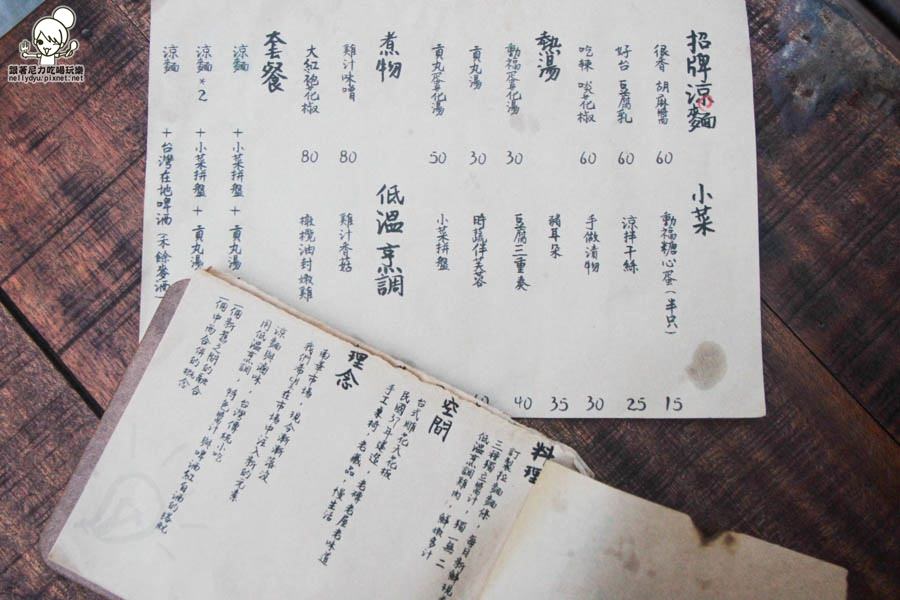 招牌涼麵
很香 胡麻醬 60
好台 豆腐乳 60
吃辣 啖花椒 60
熱湯
動福蛋花湯 30
貢丸湯 30
貢丸蛋花湯 50
煮物
雞汁味噌 80
大紅袍花椒 80
套餐
涼麵 +小菜拼盤+貢丸湯
涼麵*2 +小菜拼盤+貢丸湯
涼麵 +台灣在地啤酒(禾餘麥酒
小菜
動福糖心蛋(半只) 15
涼拌干絲 25
手做漬物 30
豬耳朵 35
豆腐三重奏 40
時蔬伴芙蓉
小菜拼盤
低溫烹調
雞汁香菇
橄欖油封嫩雞
料理
訂製拉麵麵体,每日新鮮現
三種獨立醬汁,獨一無二
低溫烹調雞肉,鮮嫩多汁
空間
台式雕花天花板
民國37年建造,老樓老屋老味道
手工東椅,老藏品,慢生活
理念
南華市場,現今漸漸落沒
我們希望在市場中注入新的元素
涼麵與滷味,台灣傳統小吃
用低溫烹調,特色醬汁與啤酒紅白酒的搭配
一個新舊之間的融合
一個中西合併的概念
跟著尼力吃喝玩樂
nellydyu.pixnet.net